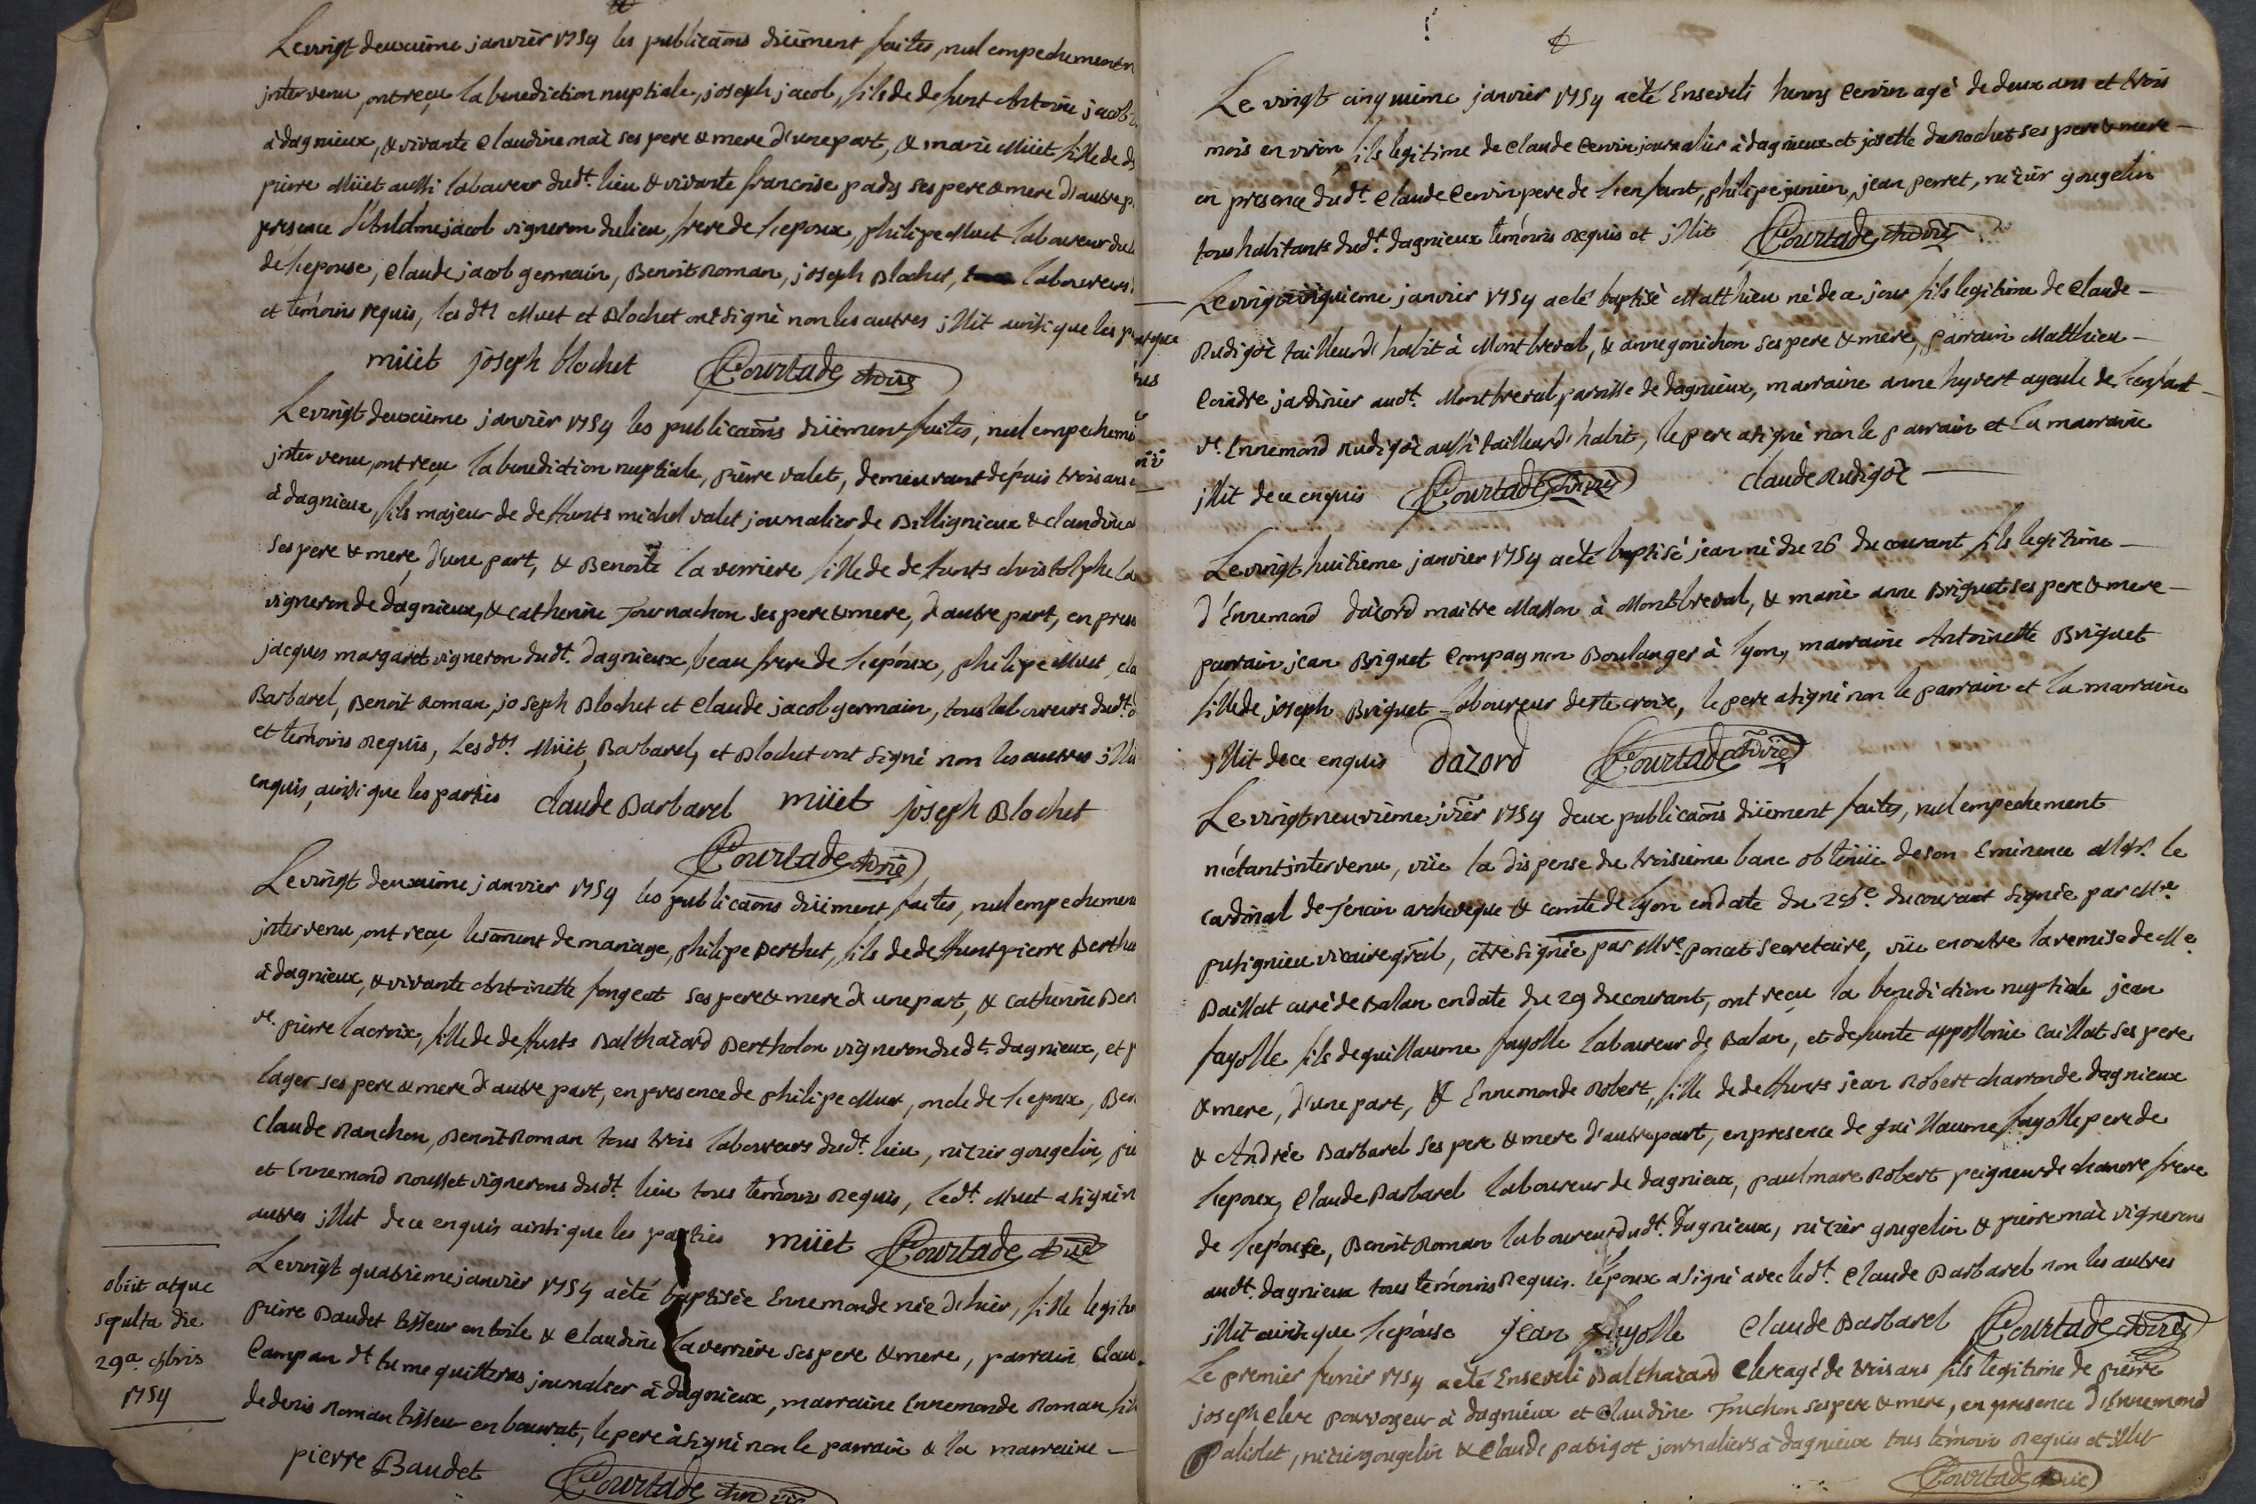 Le vingt deuxième janvier 1754 les publicaõns düement faites, nul empechement n
intervenu, ont reçu la benediction nuptiale, joseph jacob, fils de defunt Antoine jacob
à dagnieux, & vivante Claudine mai ses pere & mere d'une part, & marie Müet fille de d
pierre Müet aussi laboureur dudt. lieu & vivante francoise pady ses pere & mere d'autre p
presence d'Anthelme jacob vigneron du lieu, frere de l'epoux, philipe Muet laboureur du
de l'epouse, Claude jacob germain, Benoit Roman, joseph Blochet, laboureurs
et temoins requis, les dts Muet et Blochet ont signé non les autres illit. ainsi que les p
müet joseph blochet Courtade
Le vingt deuxième janvier 1754 les publicaõns düement faites, nul empecheme
intervenu, ont reçu la benediction nuptiale, pierre valet, demeurant depuis trois ans
à dagnieux, fils majeur de deffunts michel valet journalier de Billignieux & claudine
ses pere & mere, d'une part, & Benoite la verriere fille de defunts christolphe la
vigneron de dagnieux, & catherine Tournachon ses pere & mere, d'autre part, en pres
jacques margaret vigneron dudt. dagnieux, beau frere de l'epoux, philipe Muet, cla
Barbarel, Benoit Roman, joseph Blochet et Claude jacob germain, tous laboureurs dudt.
et temoins requis, Les dts Müet, Barbarel, et Blochet ont signé non les autres illi
enquis, ainsi que les parties claude Barbarel müet joseph Blochet
Courtade
Le vingt deuxième janvier 1754 les publicaõns düement faites, nul empechemen
intervenu, ont reçu le sament de mariage, philipe Berthet, fils de deffunt pierre Berthe
à dagnieux, & vivante Antoinette fongeat ses pere & mere d'une part, & catherine Ber
ve. pierre lacroix, fille de deffunts Balthazard Bertholon vigneron dudt. dagnieux, et p
lager ses pere & mere d'autre part, en presence de philipe Muet, oncle de l'epoux, Ben
Claude Ranchon, Benoit Roman tous trois laboureurs dudt. lieu, nizier gougelin, pi
et Ennemond rousset vignerons dudt. lieu tous temoins requis, ledt. Muet a signé n
autres illit. de ce enquis ainsi que les parties müet Courtade
Le vingt quatrième janvier 1754 a été baptisée Ennemonde née d'hier, fille legiti
pierre Baudet tisseur en toile & Claudine laverriere ses pere & mere, parrain Clau
Campan dt. tu me quitteras journalier à dagnieux, marraine Ennemonde Roman fil
de denis Roman tisseur en bourat, le pere a signé non le parrain & la marraine
obiit atque
sepulta die
29a. 9bris
1754
pierre Baudet Courtade
Le vingt cinquième janvier 1754 a été Enseveli henry Cervin agé de deux ans et trois
mois environ fils legitime de Claude Cervin journalier à dagnieux et josette du Rochet ses pere & mere
en presence dudt. Claude Cervin pere de l'enfant, philipe janien, jean perret, nizier gougelin
tous habitants dudt. dagnieux temoins requis et illit. Courtade
janvier 1754 a été baptisé Matthieu né de a jour fils legitime de Claude
Rudigoz tailleur d'habit à Montbreval, & anne gonichon ses pere & mere, parrain Matthieu
Coindre jardinier audt. Montbreval paroisse de dagnieux, marraine anne hyvert ayeule de l'enfant
ve. Ennemond Rudigoz aussi tailleur d'habit, le pere a signé non le parrain et la marraine
illit. de ce enquis Courtade claude Rudigoz
Le vingt huitième janvier 1754 a été baptisé jean né du 26 du courant fils legitime
d'Ennemond dazord maitre Masson à Montbreval, & marie anne Briguet ses pere & mere
parrain jean Briguet Compagnon Boulanger à lyon, marraine Antoinette Briguet
fille de joseph Briguet laboureur de ste croix, le pere a signé non le parrain et la marraine
illit. de ce enquis dazord Courtade
Le vingt neuvième jvier 1754 deux publicaõns düement faites, nul empechement
n'etant intervenu, vüe la dispense du troisieme banc obtenüe de son Eminence Mgr. le
cardinal de Tencin archeveque & comte de lyon en date du 28e. du courant signée par Mre.
pusignieu vicaire gñal, ctresignée par Mre. ponat secretaire, vüe en outre la remise de Me.
Baillat curé de Balan en date du 29 du courant, ont reçu la benediction nuptiale jean
fayolle fils de guillaume fayolle laboureur de Balan, et defunte appollonie caillat ses pere
& mere, d'une part, & Ennemonde Robert, fille de deffunts jean Robert charron de dagnieux
& Andrée Barbarel ses pere & mere d'autre part, en presence de guillaume fayolle pere de
l'epoux, Claude Barbarel laboureur de dagnieux, paul marc Robert peigneur de chanvre frere
de l'epouse, Benoit Roman laboureur dudt. dagnieux, nizier gougelin & pierre maì vignerons
audt. dagnieux tous temoins requis. l'epoux a signé avec ledt. Claude Barbarel non les autres
illit. ainsi que l'epouse jean fayolle Claude Barbarel Courtade
Le premier fevrier 1754 a été Enseveli Balthazard Clere agé de trois ans fils legitime de pierre
joseph Clere pourvoyeur à dagnieux et Claudine Truchon ses pere & mere, en presence d'Ennemond
Paliolet, nizier gougelin & Claude patigot journaliers à dagnieux tous temoins requis et illit.
Courtade